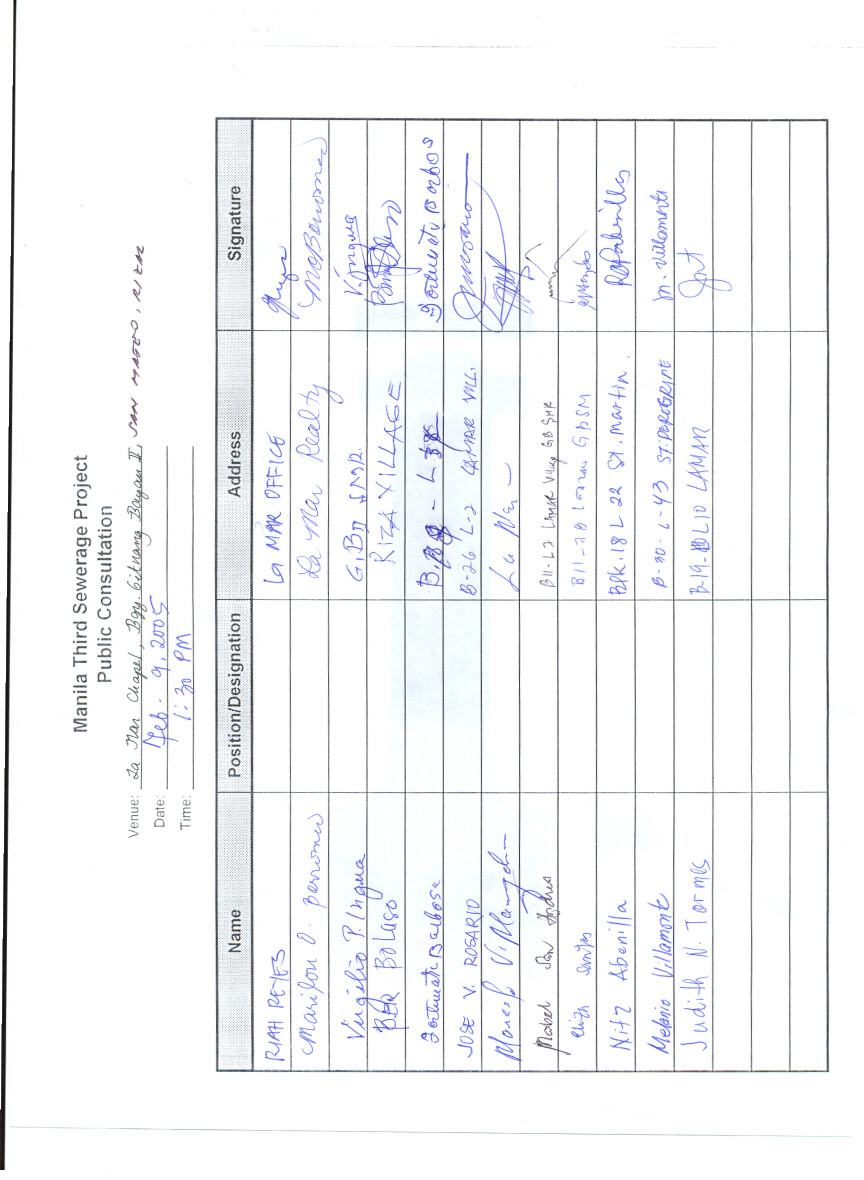 Manila Third Sewerage Project
Public Consultation
Venue: La Mar Chapel, Bgy. Gitnang Bayan II, SAN MATEO, RIZAL
Date: Feb. 9, 2005
Time: 1:30 PM
Name Position/Designation Address Signature
RIAH REYES LA MAR OFFICE
Marilou O. Borromeo La Mar Realty
Virgilio P. Ingua G.B II SMR. V.Ingua
BER BOLASO RIZA VILLAGE
Fortunato Barbosa Fortunato Barbosa
JOSE V. ROSARIO B-26 L-2 LAMAR VILL.
Marcelo La Mar
Mabel San Andres B11-L2 LAMAR Village GB SMR
Santos B11-
Nitz Abenilla Blk.18 L 22 St. Martin.
Melanio Villamonte B-20-L-43 ST. PEREGRINE M. Villamonte
Judith N. Tormes L10 LAMAR